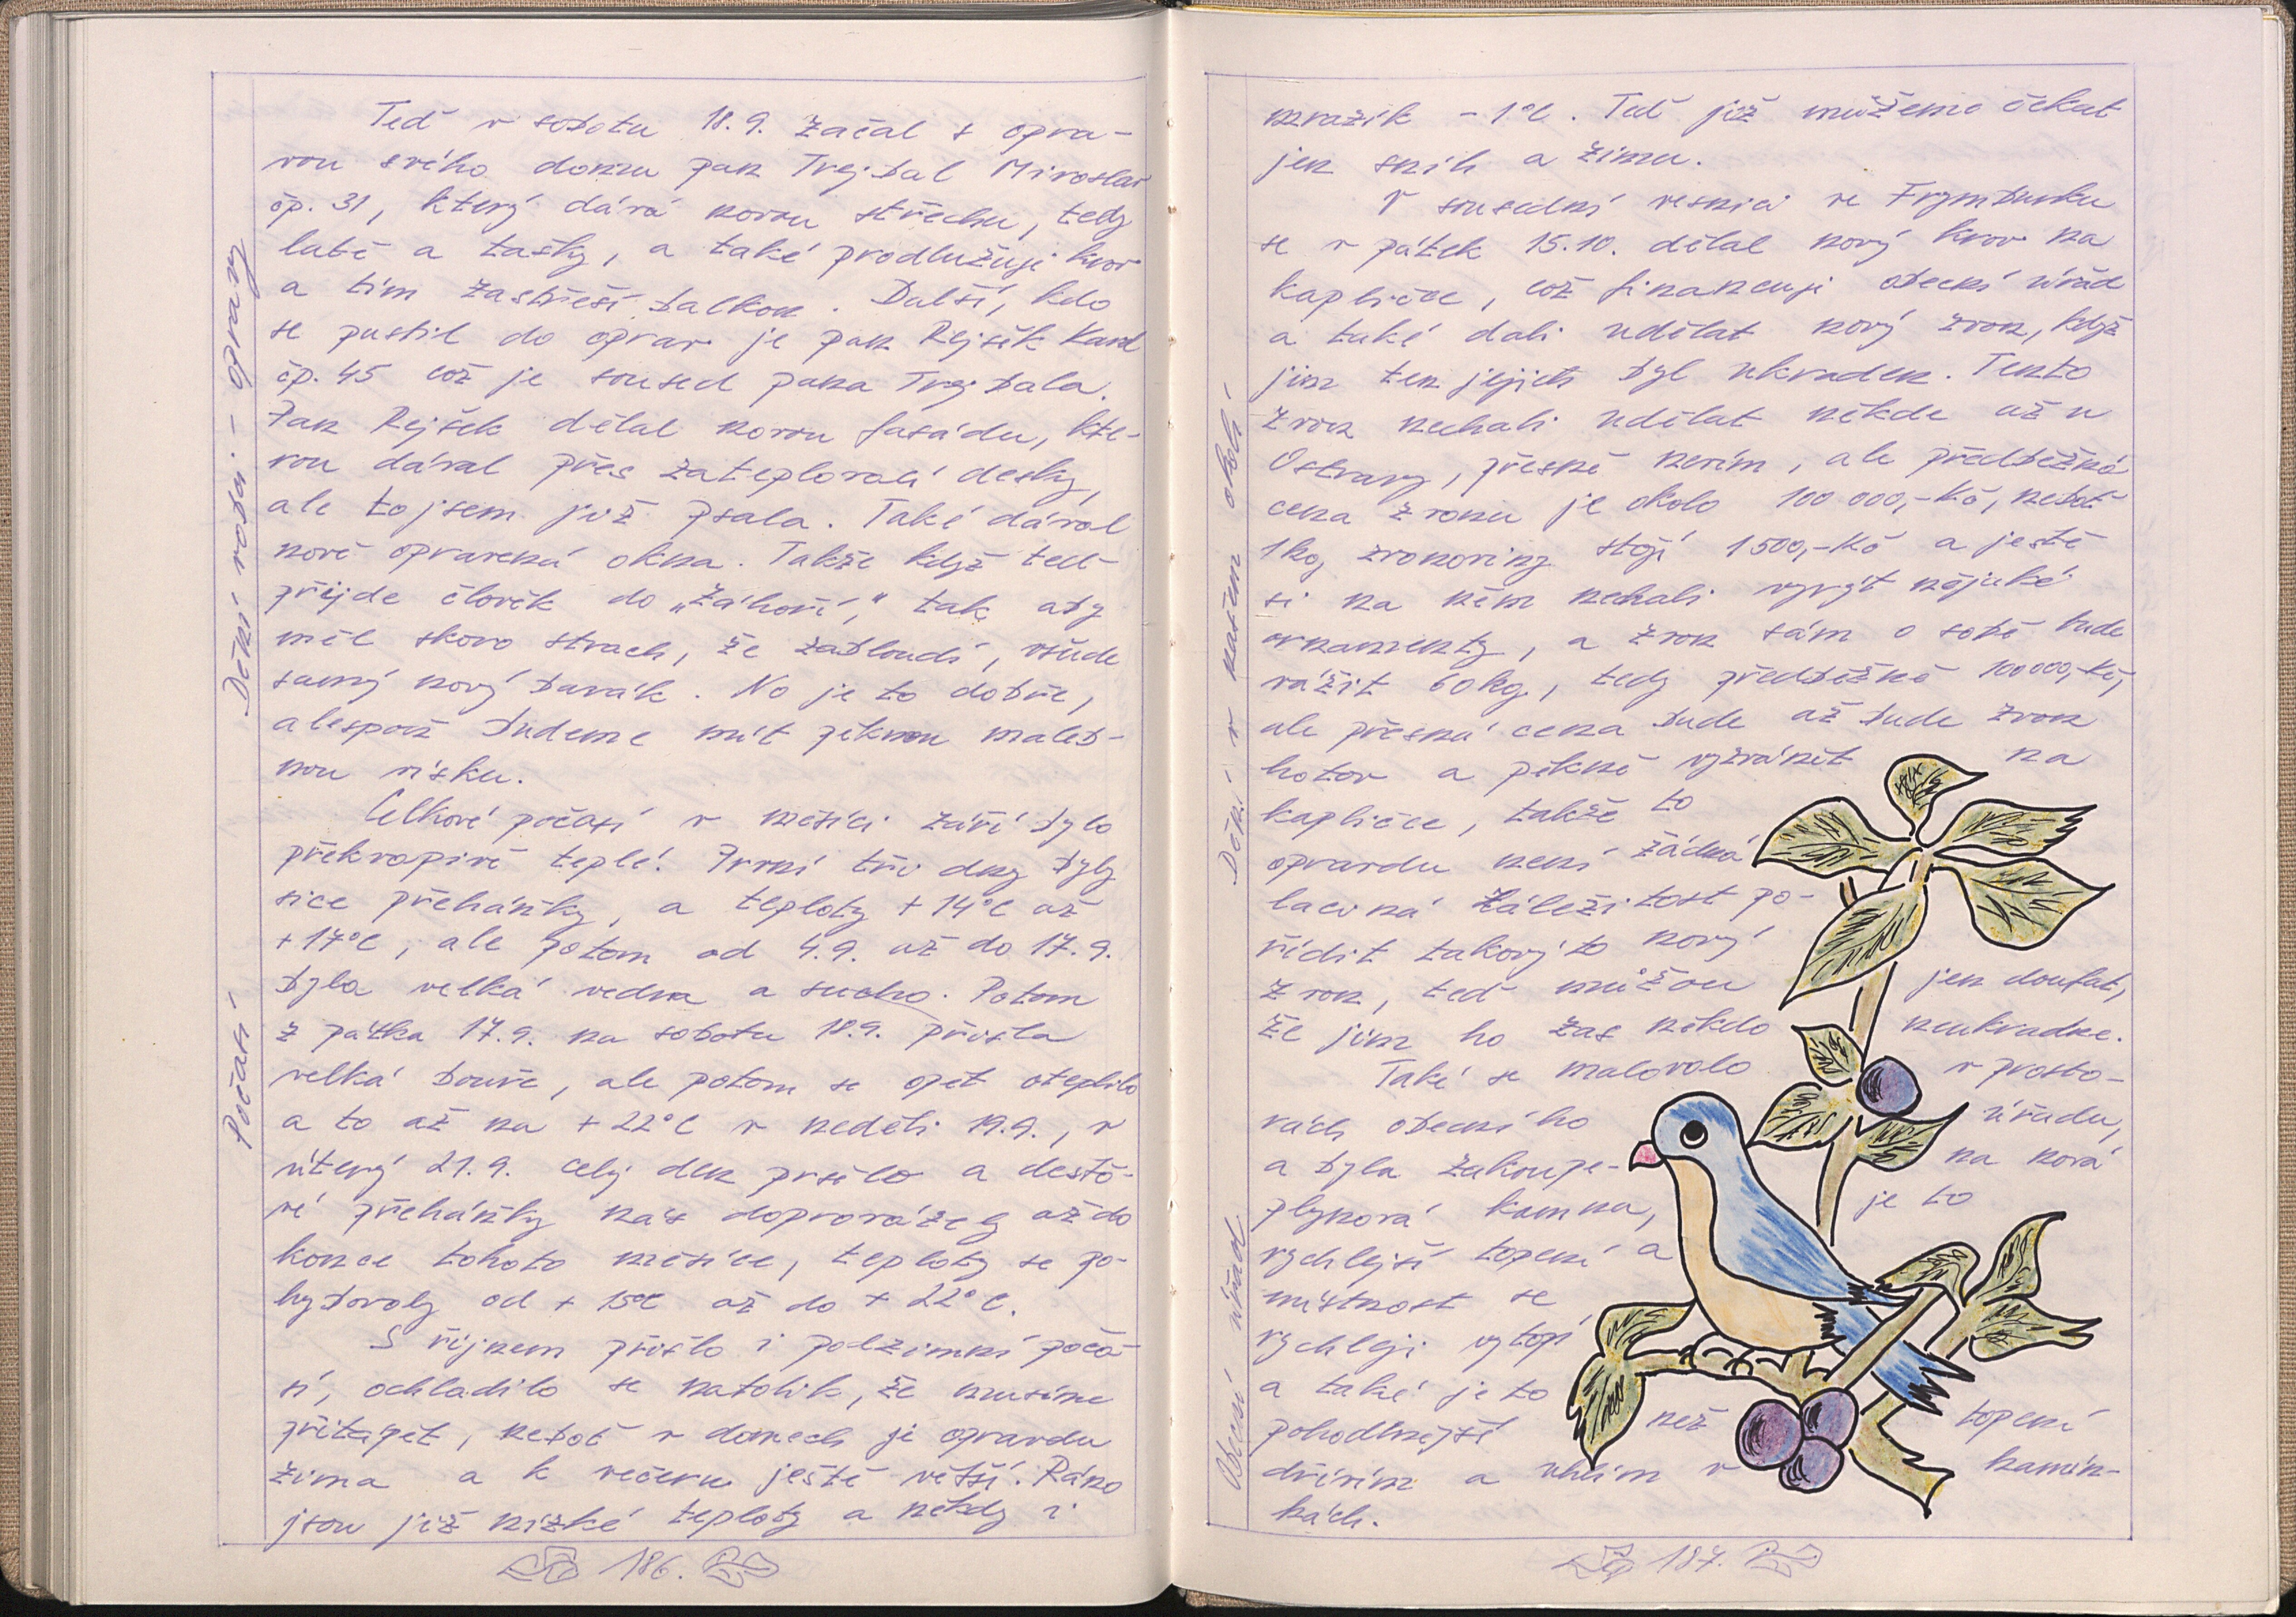 Dění v obci - opravy
Teď v sobotu 18.9. začal s opra-
vou svého domu pan Trejbal Miroslav
čp. 31, který dává novou střechu, tedy
latě a tašky, a také prodlužuje krov
a tím zastřeší balkon. Další, kdo
se pustil do oprav je pan Rejšek Karel
čp. 45 což je soused pana Trejbala.
Pan Rejšek dělal novou fasádu, kte-
rou dával přes zateplovací desky,
ale to jsem již psala. Také dával
nově opravená okna. Takže když teď
přijde člověk do „Záhoří,“ tak aby
měl skoro strach, že zabloudí, všude
samý nový barák. No je to dobře,
alespoň budeme mít pěknou maleb-
nou vísku.
Počasí
Celkové počasí v měsíci září bylo
překvapivě teplé. První tři dny byly
sice přeháňky, a teploty +14°C až
+17°C, ale potom od 4.9. až do 17.9.
byla velká vedra a sucho. Potom
z pátka 17.9. na sobotu 18.9. přišla
velká bouře, ale potom se opět oteplilo
a to až na +22°C v neděli 19.9., v
úterý 21.9. celý den pršelo a dešťo-
vé přeháňky nás doprovázely až do
konce tohoto měsíce, teploty se po-
hybovaly od +15°C až do +22°C.
S říjnem přišlo i podzimní poča-
sí, ochladilo se natolik, že musíme
přitápět, neboť v domech je opravdu
zima a k večeru ještě větší. Ráno
jsou již nízké teploty a někdy i
186.
mrazík -1°C. Teď již můžeme čekat
jen sníh a zimu.
Dění v našem okolí
V sousední vesnici ve Frymburku
se v pátek 15.10. dělal nový krov na
kapličce, což financuje obecní úřad
a také dali udělat nový zvon, když
jim ten jejich byl ukraden. Tento
zvon nechali udělat někde až u
Ostravy, přesně nevím, ale předběžná
cena zvonu je okolo 100 000,-Kč, neboť
1kg zvonoviny stojí 1500,-Kč a ještě
si na něm nechali vyrýt nějaké
ornamenty, a zvon sám o sobě bude
vážit 60kg, tedy předběžně 100000,-Kč,
ale přesná cena bude až bude zvon
hotov a pěkně vyzvánět na
kapličce, takže to
opravdu není žádná
laciná záležitost po-
řídit takový to nový
zvon, teď můžou jen doufat,
že jim ho zas někdo neukradne.
Obecní úřad
Také se malovalo v prosto-
rách obecního úřadu,
a byla zakoupe- na nová
plynová kamna, je to
rychlejší topení a
místnost se
rychleji vytopí
a také je to
pohodlnější než topení
dřívím a uhlím v kamín-
kách.
187.